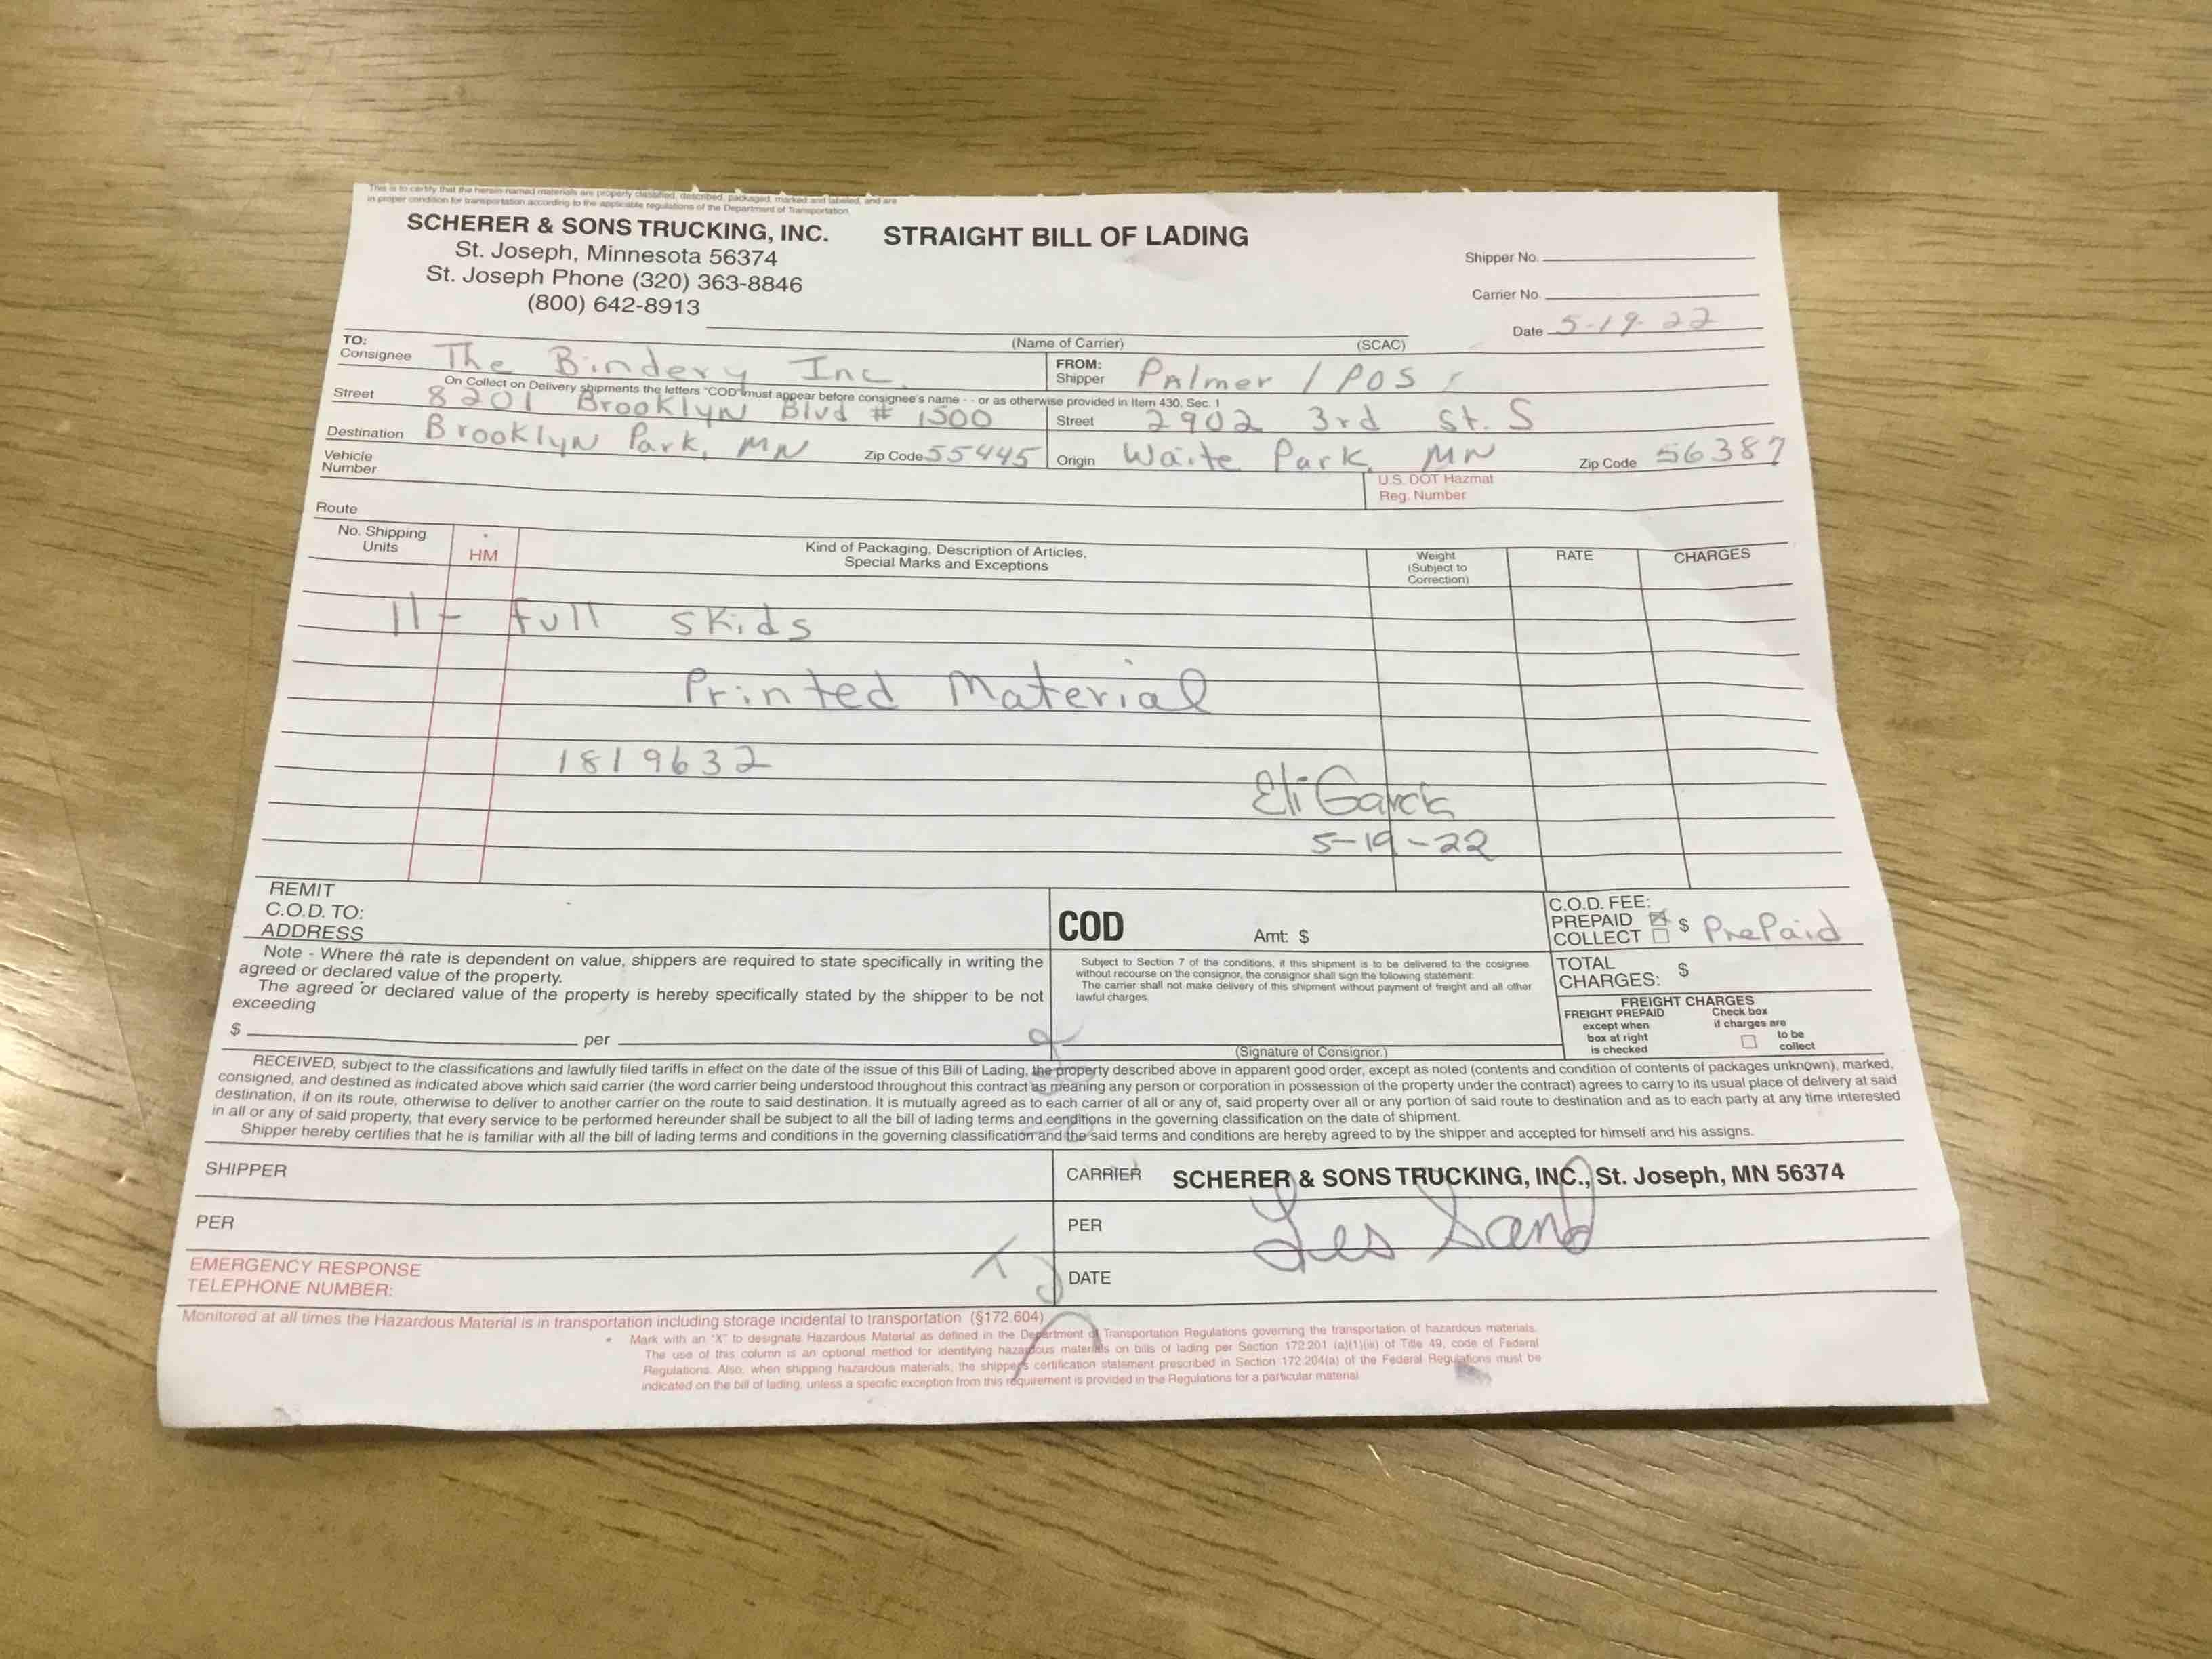 This is to certify that the herein-named materials are properly classified, described, packaged, marked and labeled, and are
in proper condition for transportation according to the applicable regulations of the Department of Transportation.
SCHERER & SONS TRUCKING, INC.
St. Joseph, Minnesota 56374
St. Joseph Phone (320) 363-8846
(800) 642-8913
STRAIGHT BILL OF LADING
Shipper No.
Carrier No.
Date 5-19-22
(Name of Carrier) (SCAC)
TO:
Consignee The Bindery Inc.
FROM:
Shipper Palmer / POS
On Collect on Delivery shipments the letters "COD" must appear before consignee's name - - or as otherwise provided in Item 430, Sec. 1
Street 8201 Brooklyn Blvd # 1500
Street 2902 3rd St. S
Destination Brooklyn Park, MN Zip Code 55445
Origin Waite Park, MN Zip Code 56387
Vehicle
Number
U.S. DOT Hazmat
Reg. Number
Route
No. Shipping
Units
*
HM
Kind of Packaging, Description of Articles,
Special Marks and Exceptions
Weight
(Subject to
Correction)
RATE
CHARGES
11 - full skids
Printed Material
1819632
Eli Garcia
5-19-22
REMIT
C.O.D. TO:
ADDRESS
COD Amt: $
C.O.D. FEE:
PREPAID $ PrePaid
COLLECT
Note - Where the rate is dependent on value, shippers are required to state specifically in writing the
agreed or declared value of the property.
The agreed or declared value of the property is hereby specifically stated by the shipper to be not
exceeding
$ per
Subject to Section 7 of the conditions, if this shipment is to be delivered to the cosignee
without recourse on the consignor, the consignor shall sign the following statement:
The carrier shall not make delivery of this shipment without payment of freight and all other
lawful charges.
(Signature of Consignor.)
TOTAL
CHARGES: $
FREIGHT CHARGES
FREIGHT PREPAID
except when
box at right
is checked
Check box
if charges are
to be
collect
RECEIVED, subject to the classifications and lawfully filed tariffs in effect on the date of the issue of this Bill of Lading, the property described above in apparent good order, except as noted (contents and condition of contents of packages unknown), marked,
consigned, and destined as indicated above which said carrier (the word carrier being understood throughout this contract as meaning any person or corporation in possession of the property under the contract) agrees to carry to its usual place of delivery at said
destination, if on its route, otherwise to deliver to another carrier on the route to said destination. It is mutually agreed as to each carrier of all or any of, said property over all or any portion of said route to destination and as to each party at any time interested
in all or any of said property, that every service to be performed hereunder shall be subject to all the bill of lading terms and conditions in the governing classification on the date of shipment.
Shipper hereby certifies that he is familiar with all the bill of lading terms and conditions in the governing classification and the said terms and conditions are hereby agreed to by the shipper and accepted for himself and his assigns.
SHIPPER
CARRIER SCHERER & SONS TRUCKING, INC., St. Joseph, MN 56374
PER
PER Les Sand
EMERGENCY RESPONSE
TELEPHONE NUMBER:
DATE
Monitored at all times the Hazardous Material is in transportation including storage incidental to transportation (§172.604)
* Mark with an "X" to designate Hazardous Material as defined in the Department of Transportation Regulations governing the transportation of hazardous materials.
The use of this column is an optional method for identifying hazardous materials on bills of lading per Section 172.201 (a)(1)(iii) of Title 49, code of Federal
Regulations. Also, when shipping hazardous materials, the shipper's certification statement prescribed in Section 172.204(a) of the Federal Regulations must be
indicated on the bill of lading, unless a specific exception from this requirement is provided in the Regulations for a particular material.